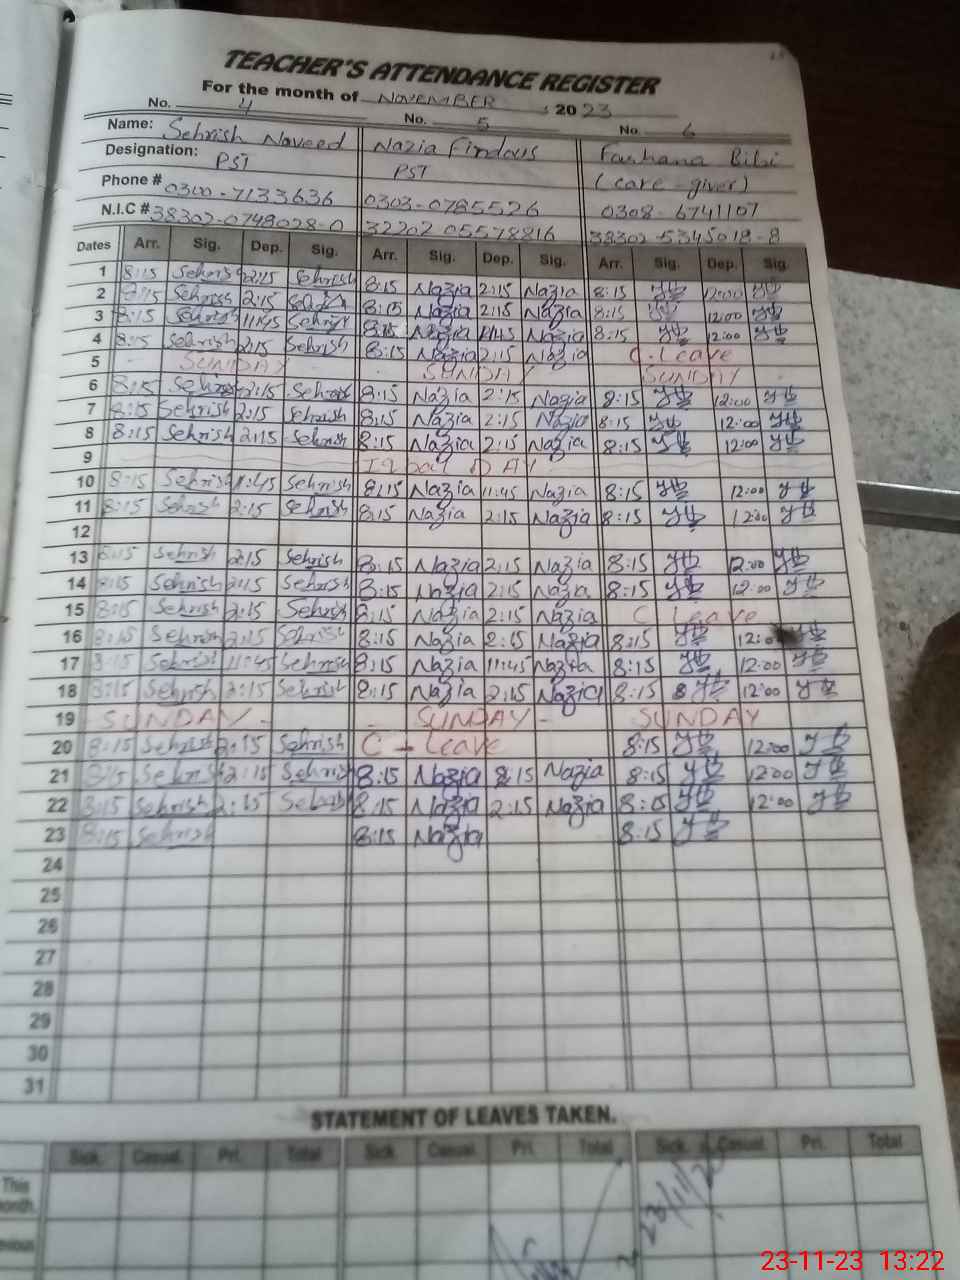 TEACHER'S ATTENDANCE REGISTER
For the month of NOVEMBER 2023
No. 4 No. 5 No. 6
Name: Sehrish Naveed Nazia Firdous Farhana Bibi
Designation: PST PST (care-giver)
Phone # 0300-7133636 0303-0785526 0308-6741107
N.I.C # 38302-0748028-0 32202 05578816 38302-5345018-8
Dates Arr. Sig. Dep. Sig. Arr. Sig. Dep. Sig. Arr. Sig. Dep. Sig.
1 8:15 Sehrish 2:15 Sehrish 8:15 Nazia 2:15 Nazia 8:15 12:00
2 8:15 Sehrish 2:15 8:15 Nazia 2:15 Nazia 8:15 12:00
3 8:15 Sehrish 11:45 Sehrish 8:15 Nazia 11:45 Nazia 8:15 12:00
4 8:15 Sehrish 2:15 Sehrish 8:15 Nazia 2:15 Nazia C-Leave
5 SUNDAY SUNDAY SUNDAY
6 8:15 Sehrish 2:15 Sehrish 8:15 Nazia 2:15 Nazia 8:15 12:00
7 8:15 Sehrish 2:15 Sehrish 8:15 Nazia 2:15 Nazia 8:15 12:00
8 8:15 Sehrish 2:15 Sehrish 8:15 Nazia 2:15 Nazia 8:15 12:00
9 Iqbal DAY
10 8:15 Sehrish 11:45 Sehrish 8:15 Nazia 11:45 Nazia 8:15 12:00
11 8:15 Sehrish 2:15 Sehrish 8:15 Nazia 2:15 Nazia 8:15 12:00
12
13 8:15 Sehrish 2:15 Sehrish 8:15 Nazia 2:15 Nazia 8:15 12:00
14 8:15 Sehrish 2:15 Sehrish 8:15 Nazia 2:15 Nazia 8:15 12:00
15 8:15 Sehrish 2:15 Sehrish 8:15 Nazia 2:15 Nazia C Leave
16 8:15 Sehrish 2:15 Sehrish 8:15 Nazia 2:15 Nazia 8:15 12:00
17 8:15 Sehrish 11:45 Sehrish 8:15 Nazia 11:45 Nazia 8:15 12:00
18 8:15 Sehrish 2:15 Sehrish 8:15 Nazia 2:15 Nazia 8:15 12:00
19 - SUNDAY - - SUNDAY - SUNDAY
20 8:15 Sehrish 2:15 Sehrish C - Leave 8:15 12:00
21 8:15 Sehrish 2:15 Sehrish 8:15 Nazia 8:15 Nazia 8:15 12:00
22 8:15 Sehrish 2:15 Sehrish 8:15 Nazia 2:15 Nazia 8:15 12:00
23 8:15 Sehrish 8:15 Nazia 8:15
24
25
26
27
28
29
30
31
STATEMENT OF LEAVES TAKEN.
Sick. Casual. Pri. Total Sick. Casual. Pri. Total Sick. Casual. Pri. Total
This
month.
23/11/
23-11-23 13:22